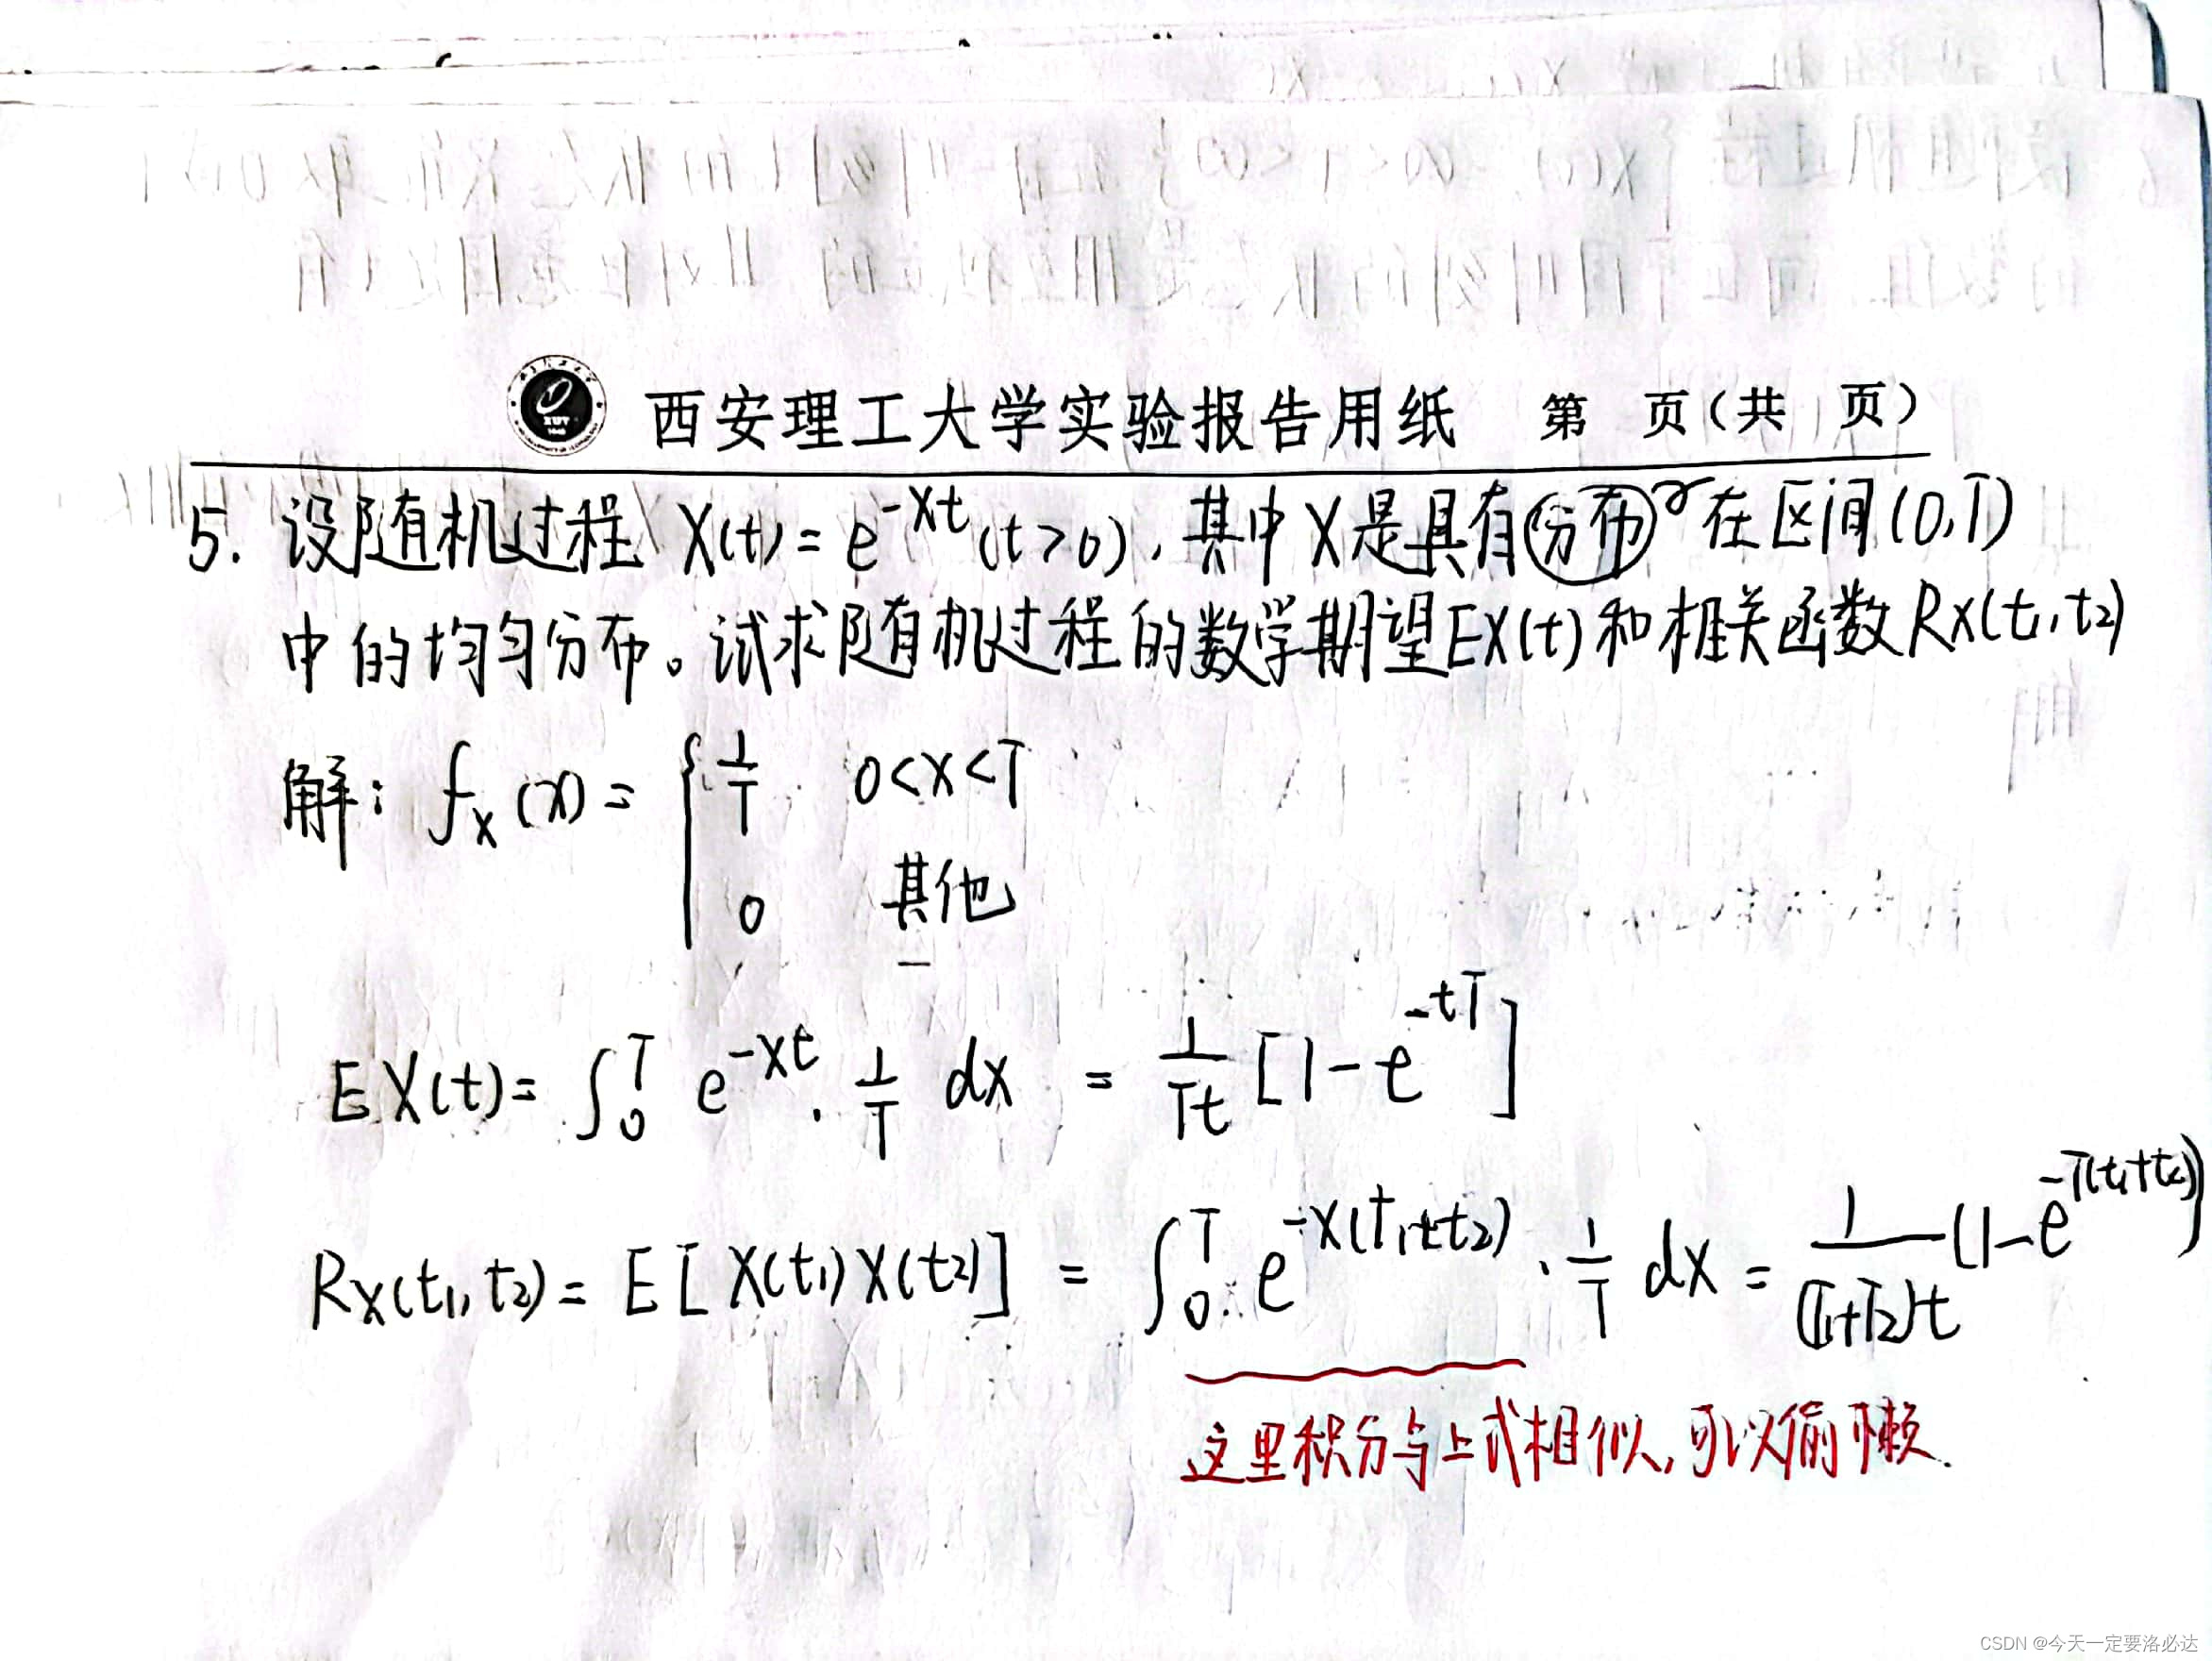 西安理工大学实验报告用纸 第 页(共 页)
5. 设随机过程 X(t) = e^{-Xt} (t>0), 其中X是具有分布在区间(0,T)
中的均匀分布。试求随机过程的数学期望EX(t)和相关函数RX(t1,t2)
解: fX(x) = { 1/T 0<x<T
0 其他
EX(t) = ∫_0^T e^{-xt} · 1/T dx = 1/(Tt) [1-e^{-tT}]
RX(t1,t2) = E[X(t1)X(t2)] = ∫_0^T e^{-x(t1+t2)} · 1/T dx = 1/((T1+T2)t) (1-e^{-T(t1+t2)})
这里积分与上式相似,可以偷懒.
CSDN @今天一定要洛必达